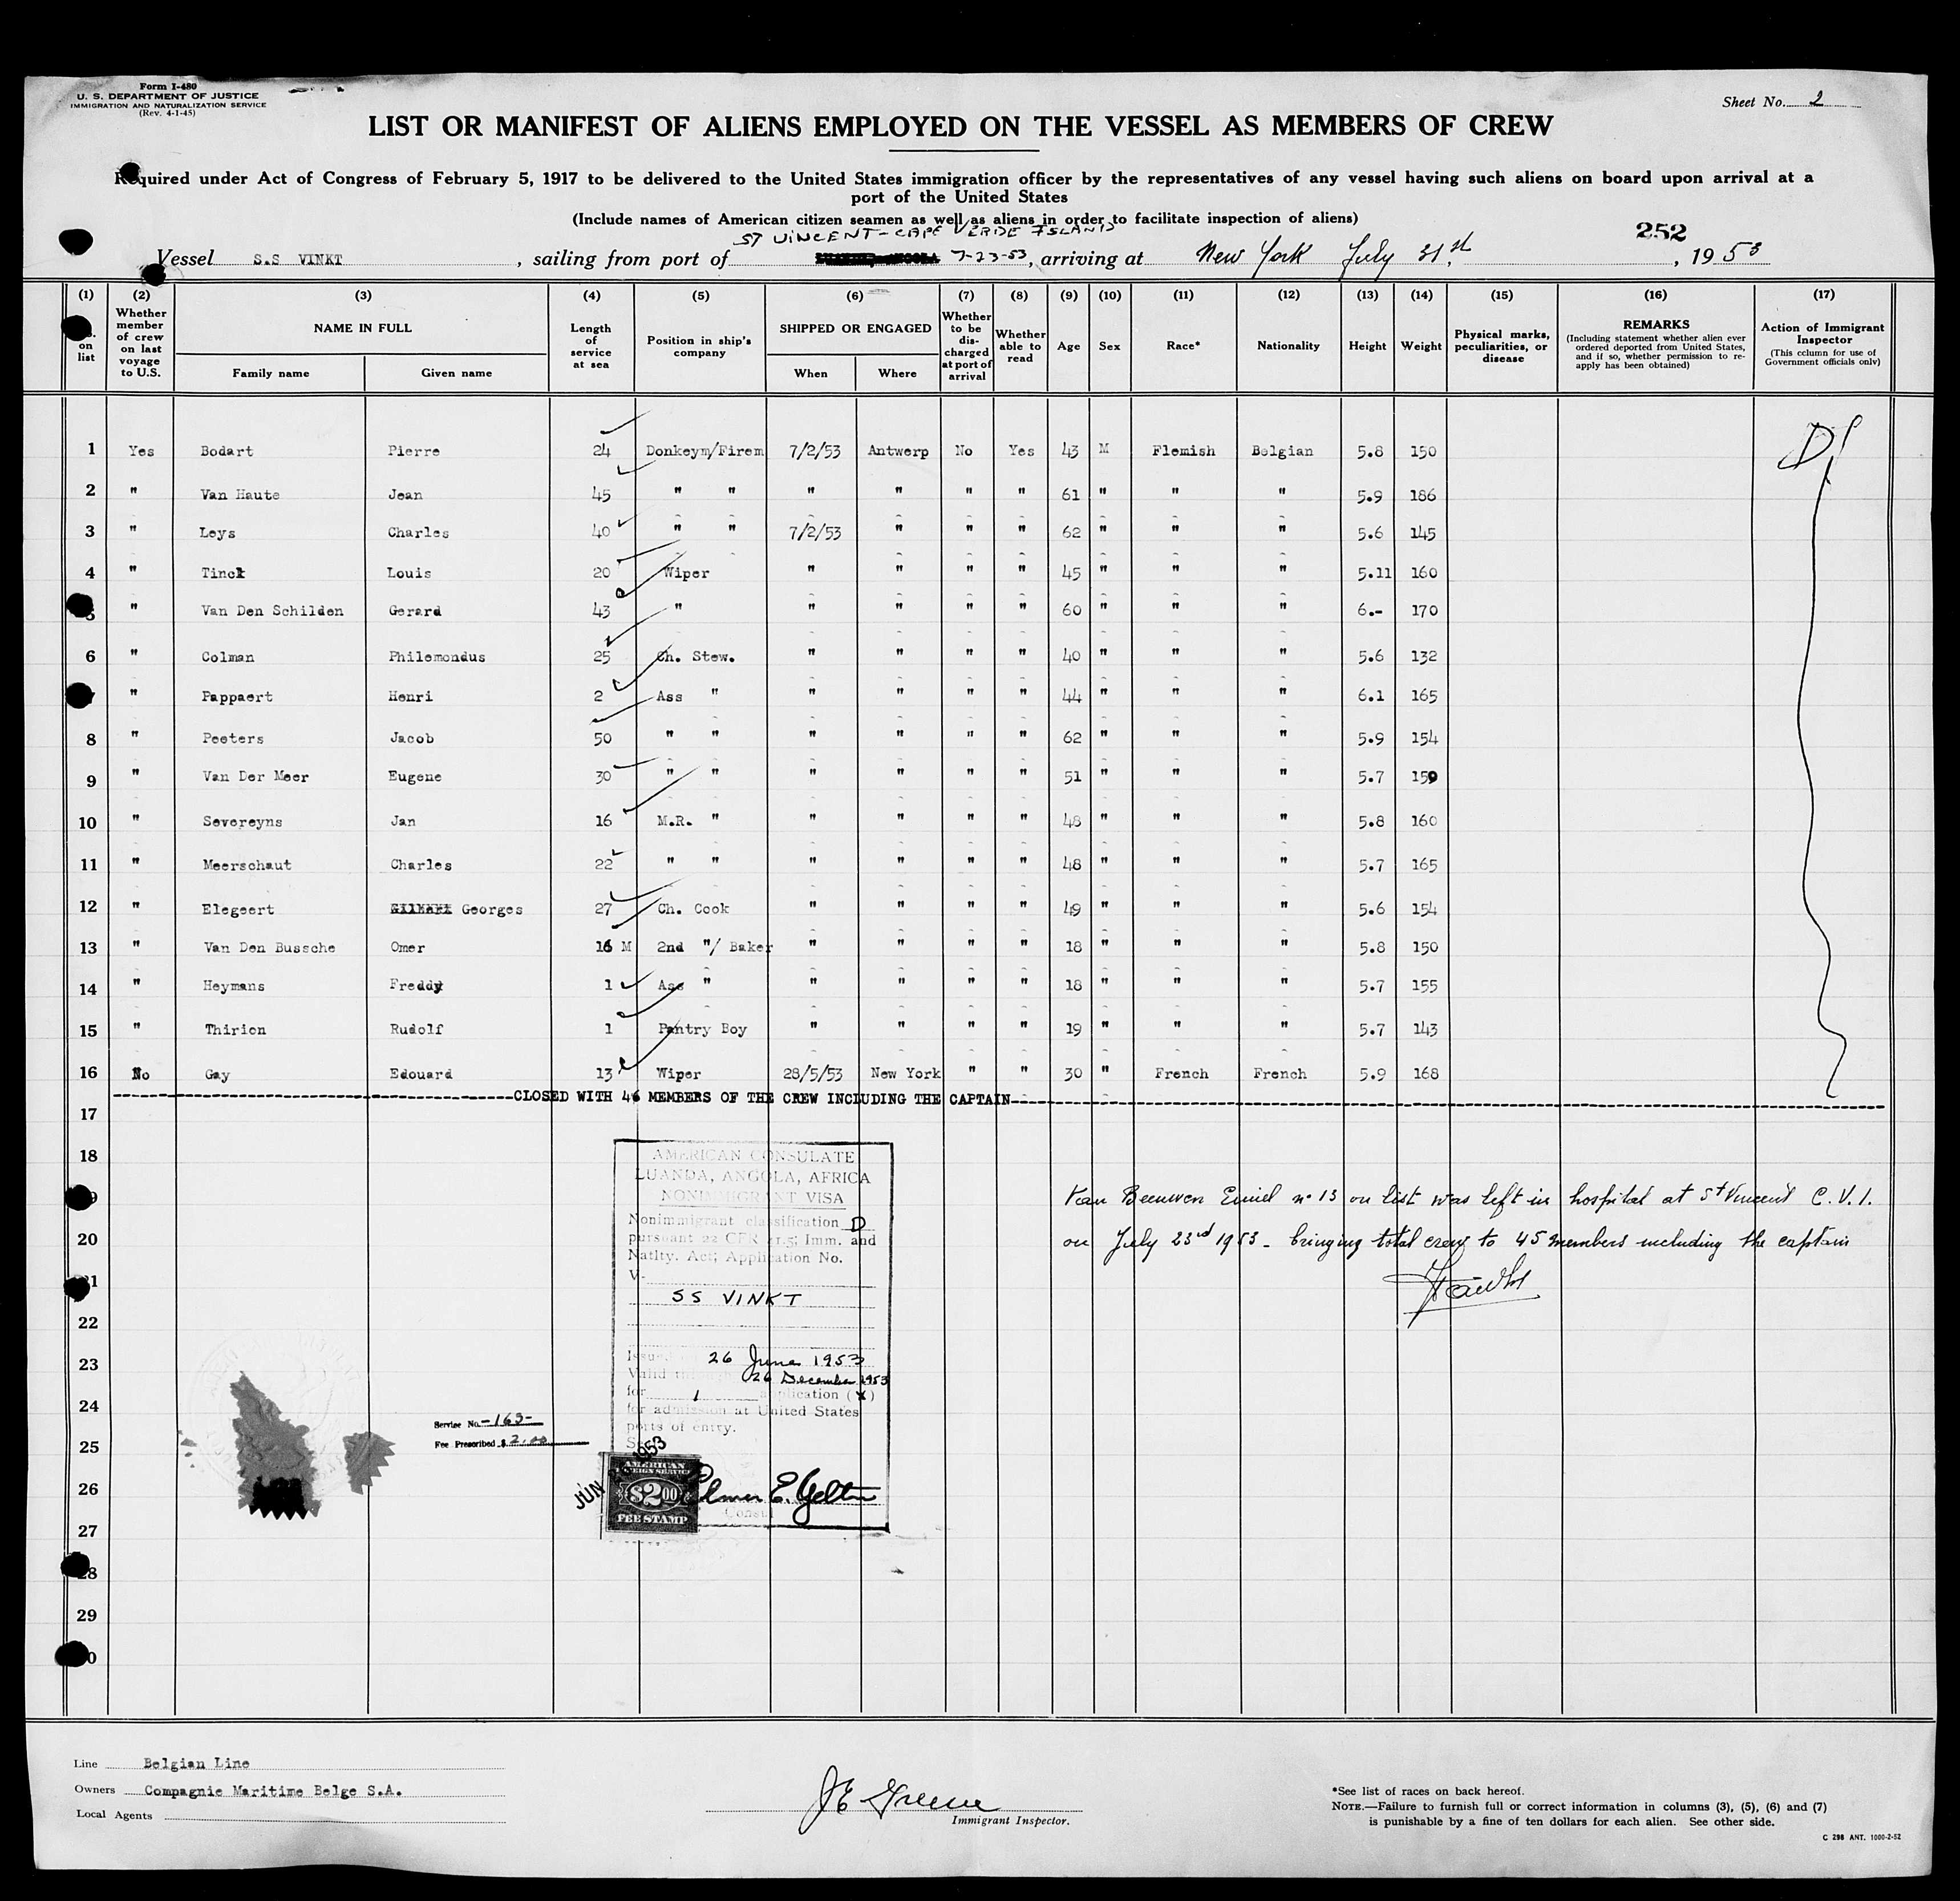 Form I-480
U. S. DEPARTMENT OF JUSTICE
IMMIGRATION AND NATURALIZATION SERVICE
(Rev. 4-1-45)
Sheet No. 2
LIST OR MANIFEST OF ALIENS EMPLOYED ON THE VESSEL AS MEMBERS OF CREW
Required under Act of Congress of February 5, 1917 to be delivered to the United States immigration officer by the representatives of any vessel having such aliens on board upon arrival at a
port of the United States
(Include names of American citizen seamen as well as aliens in order to facilitate inspection of aliens)
ST VINCENT - CAPE VERDE ISLAND
252
Vessel S.S VINKT , sailing from port of 7-23-53, arriving at New York July 31st , 1953
(1) (2) (3) (4) (5) (6) (7) (8) (9) (10) (11) (12) (13) (14) (15) (16) (17)
on list
Whether member of crew on last voyage to U.S.
NAME IN FULL
Family name Given name
Length of service at sea
Position in ship's company
SHIPPED OR ENGAGED
When Where
Whether to be discharged at port of arrival
Whether able to read
Age
Sex
Race*
Nationality
Height
Weight
Physical marks, peculiarities, or disease
REMARKS
(Including statement whether alien ever ordered deported from United States, and if so, whether permission to re-apply has been obtained)
Action of Immigrant Inspector
(This column for use of Government officials only)
1 Yes Bodart Pierre 24 Donkeym/Firem 7/2/53 Antwerp No Yes 43 M Flemish Belgian 5.8 150 D
2 " Van Haute Jean 45 " " " " " " 61 " " " 5.9 186
3 " Leys Charles 40 " " 7/2/53 " " " 62 " " " 5.6 145
4 " Tinck Louis 20 Wiper " " " " 45 " " " 5.11 160
5 " Van Den Schilden Gerard 43 " " " " " 60 " " " 6.- 170
6 " Colman Philemondus 25 Ch. Stew. " " " " 40 " " " 5.6 132
" Pappaert Henri 2 Ass " " " " " 44 " " " 6.1 165
8 " Peeters Jacob 50 " " " " " " 62 " " " 5.9 154
9 " Van Der Meer Eugene 30 " " " " " " 51 " " " 5.7 159
10 " Severeyns Jan 16 M.R. " " " " " 48 " " " 5.8 160
11 " Meerschaut Charles 22 " " " " " " 48 " " " 5.7 165
12 " Elegeert Georges 27 Ch. Cook " " " " 49 " " " 5.6 154
13 " Van Den Bussche Omer 16 M 2nd "/ Baker " " " " 18 " " " 5.8 150
14 " Heymans Freddy 1 Ass " " " " " 18 " " " 5.7 155
15 " Thirion Rudolf 1 Pantry Boy " " " " 19 " " " 5.7 143
16 No Gay Edouard 13 Wiper 28/5/53 New York " " 30 " French French 5.9 168
CLOSED WITH 46 MEMBERS OF THE CREW INCLUDING THE CAPTAIN
17
18
19
20
21
22
23
24
25
26
27
28
29
AMERICAN CONSULATE
LUANDA, ANGOLA, AFRICA
NONIMMIGRANT VISA
Nonimmigrant classification D
pursuant 22 CFR 41.5; Imm. and
Natlty. Act; Application No.
V-
SS VINKT
Issued 26 June 1953
Valid through 26 December 1953
for 1 application (X)
for admission at United States
ports of entry.
Elmer E. Yelton
Consul
JUN 1953
AMERICAN
FOREIGN SERVICE
$2.00
FEE STAMP
Service No. -163-
Fee Prescribed $ 2.00
Van Beeuwen Emiel no 13 on list was left in hospital at St Vincent C.V.I.
on July 23rd 1953 - bringing total crew to 45 members including the captain
Line Belgian Line
Owners Compagnie Maritime Belge S.A.
Local Agents
JE Greene
Immigrant Inspector.
*See list of races on back hereof.
NOTE.—Failure to furnish full or correct information in columns (3), (5), (6) and (7)
is punishable by a fine of ten dollars for each alien. See other side.
C 298 ANT. 1000-2-52